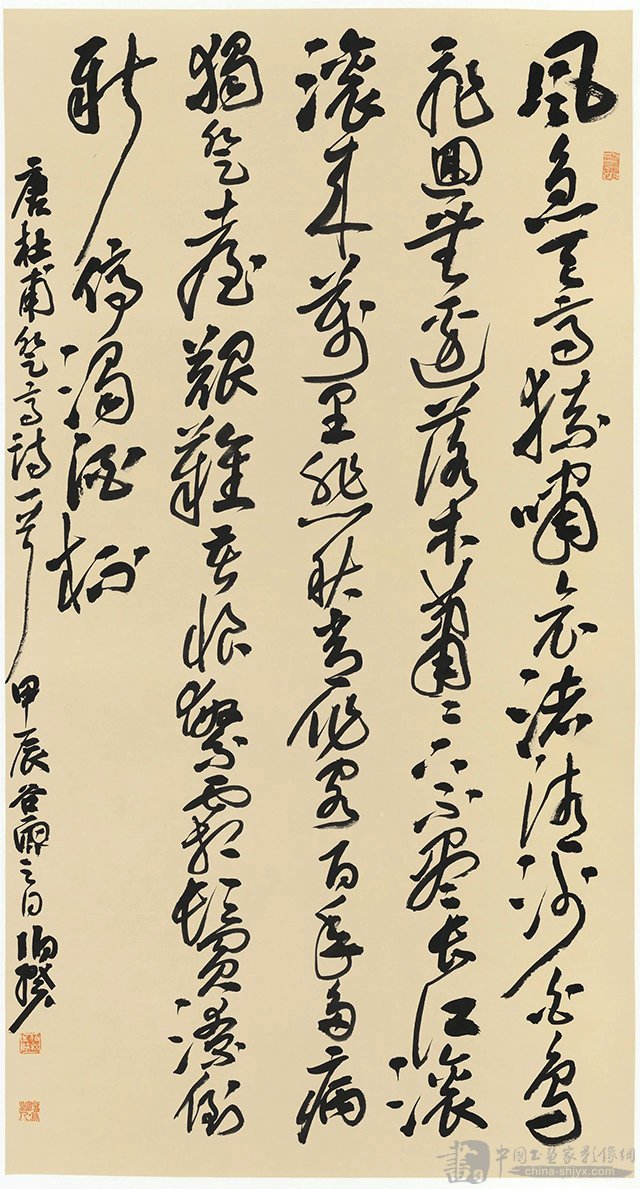 風急天高猿嘯哀渚清沙白鳥
飛回無邊落木蕭〻下不盡長江滾
滾來萬里悲秋常作客百年多病
獨登臺艱難苦恨繁霜鬢潦倒
新停濁酒杯
唐杜甫登高詩一首 甲辰谷雨之日
書 中国书画家影像網
china-shjyx.com